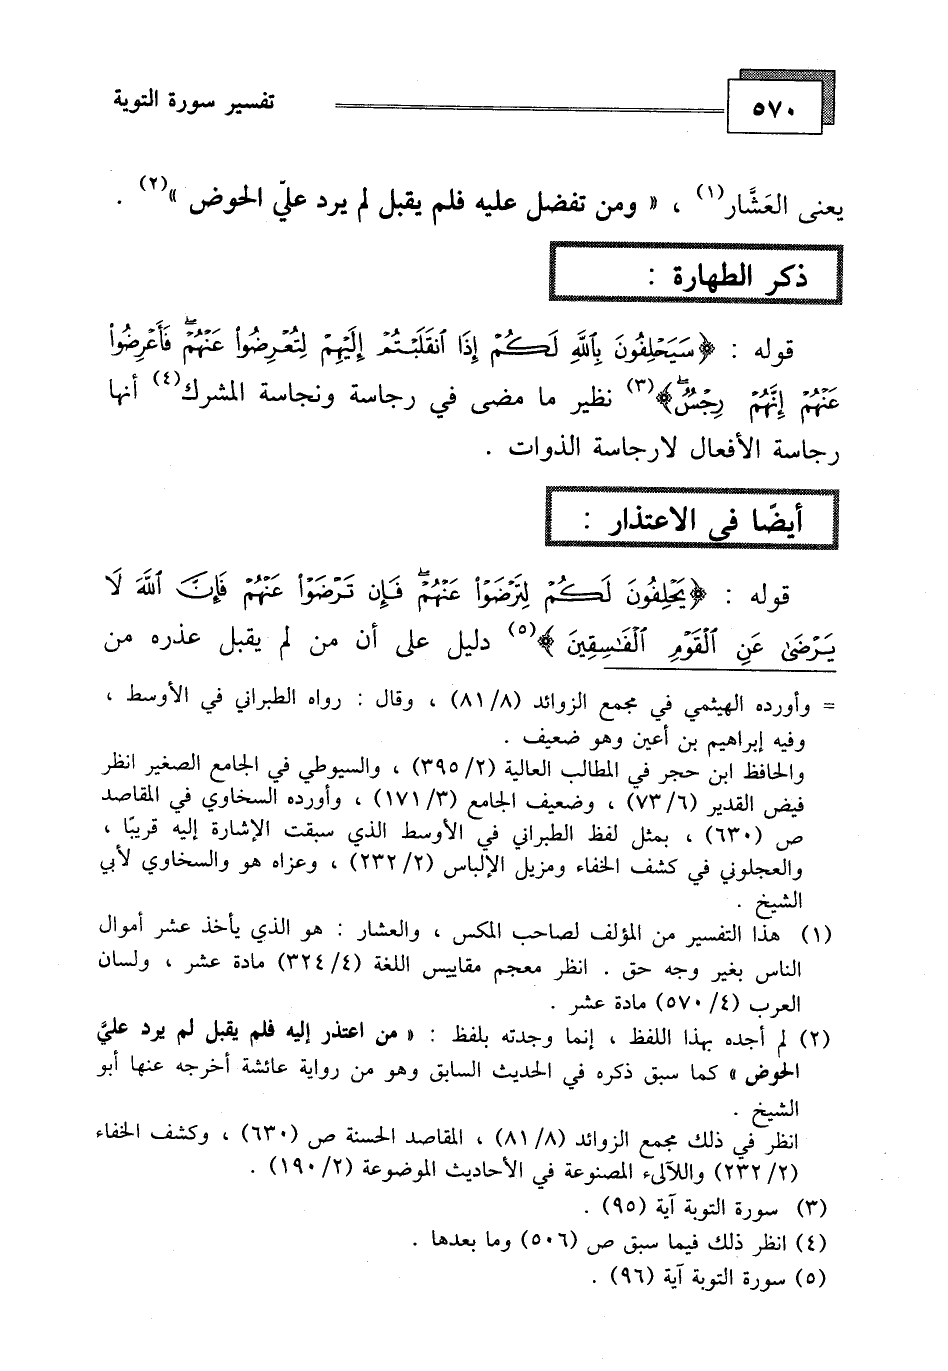 ٥٧٠ تفسير سورة التوبة
يعنى العَشَّار(١) ، « ومن تفضل عليه فلم يقبل لم يرد عليّ الحوض »(٢) .
ذكر الطهارة :
قوله : ﴿سَيَحْلِفُونَ بِٱللَّهِ لَكُمْ إِذَا ٱنقَلَبْتُمْ إِلَيْهِمْ لِتُعْرِضُوا۟ عَنْهُمْ ۖ فَأَعْرِضُوا۟
عَنْهُمْ إِنَّهُمْ رِجْسٌ ۖ﴾(٣) نظير ما مضى في رجاسة ونجاسة المشرك(٤) أنها
رجاسة الأفعال لارجاسة الذوات .
أيضًا في الاعتذار :
قوله : ﴿يَحْلِفُونَ لَكُمْ لِتَرْضَوْا۟ عَنْهُمْ ۖ فَإِن تَرْضَوْا۟ عَنْهُمْ فَإِنَّ ٱللَّهَ لَا
يَرْضَىٰ عَنِ ٱلْقَوْمِ ٱلْفَٰسِقِينَ ﴾(٥) دليل على أن من لم يقبل عذره من
= وأورده الهيثمي في مجمع الزوائد (٨١/٨) ، وقال : رواه الطبراني في الأوسط ،
وفيه إبراهيم بن أعين وهو ضعيف .
والحافظ ابن حجر في المطالب العالية (٣٩٥/٢) ، والسيوطي في الجامع الصغير انظر
فيض القدير (٧٣/٦) ، وضعيف الجامع (١٧١/٣) ، وأورده السخاوي في المقاصد
ص (٦٣٠) ، بمثل لفظ الطبراني في الأوسط الذي سبقت الإشارة إليه قريبًا ،
والعجلوني في كشف الخفاء ومزيل الإلباس (٢٣٢/٢) ، وعزاه هو والسخاوي لأبي
الشيخ .
(١) هذا التفسير من المؤلف لصاحب المكس ، والعشار : هو الذي يأخذ عشر أموال
الناس بغير وجه حق . انظر معجم مقاييس اللغة (٣٢٤/٤) مادة عشر ، ولسان
العرب (٥٧٠/٤) مادة عشر .
(٢) لم أجده بهذا اللفظ ، إنما وجدته بلفظ : « من اعتذر إليه فلم يقبل لم يرد عليَّ
الحوض » كما سبق ذكره في الحديث السابق وهو من رواية عائشة أخرجه عنها أبو
الشيخ .
انظر في ذلك مجمع الزوائد (٨١/٨) ، المقاصد الحسنة ص (٦٣٠) ، وكشف الخفاء
(٢٣٢/٢) واللآلىء المصنوعة في الأحاديث الموضوعة (١٩٠/٢) .
(٣) سورة التوبة آية (٩٥) .
(٤) انظر ذلك فيما سبق ص (٥٠٦) وما بعدها .
(٥) سورة التوبة آية (٩٦) .